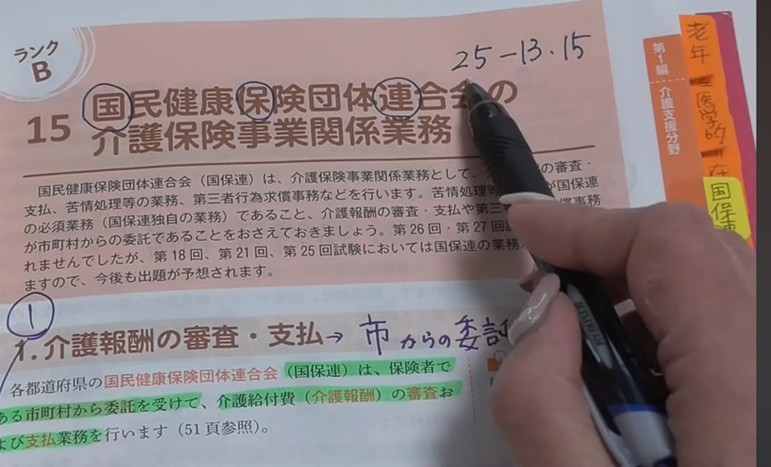 ランク
B
25-13.15
15 国民健康保険団体連合会の
介護保険事業関係業務
国民健康保険団体連合会（国保連）は、介護保険事業関係業務として、の審査・
支払、苦情処理等の業務、第三者行為求償事務などを行います。苦情処理等が国保連
の必須業務（国保連独自の業務）であること、介護報酬の審査・支払や第三償事務
が市町村からの委託であることをおさえておきましょう。第26回・第27回
れませんでしたが、第18回、第21回、第25回試験においては国保連の業務
ますので、今後も出題が予想されます。
1
1.介護報酬の審査・支払→市からの委託
各都道府県の国民健康保険団体連合会（国保連）は、保険者で
ある市町村から委託を受けて、介護給付費（介護報酬）の審査お
よび支払業務を行います（51頁参照）。
第1編
介護支援分野
老年
医学的
国保連